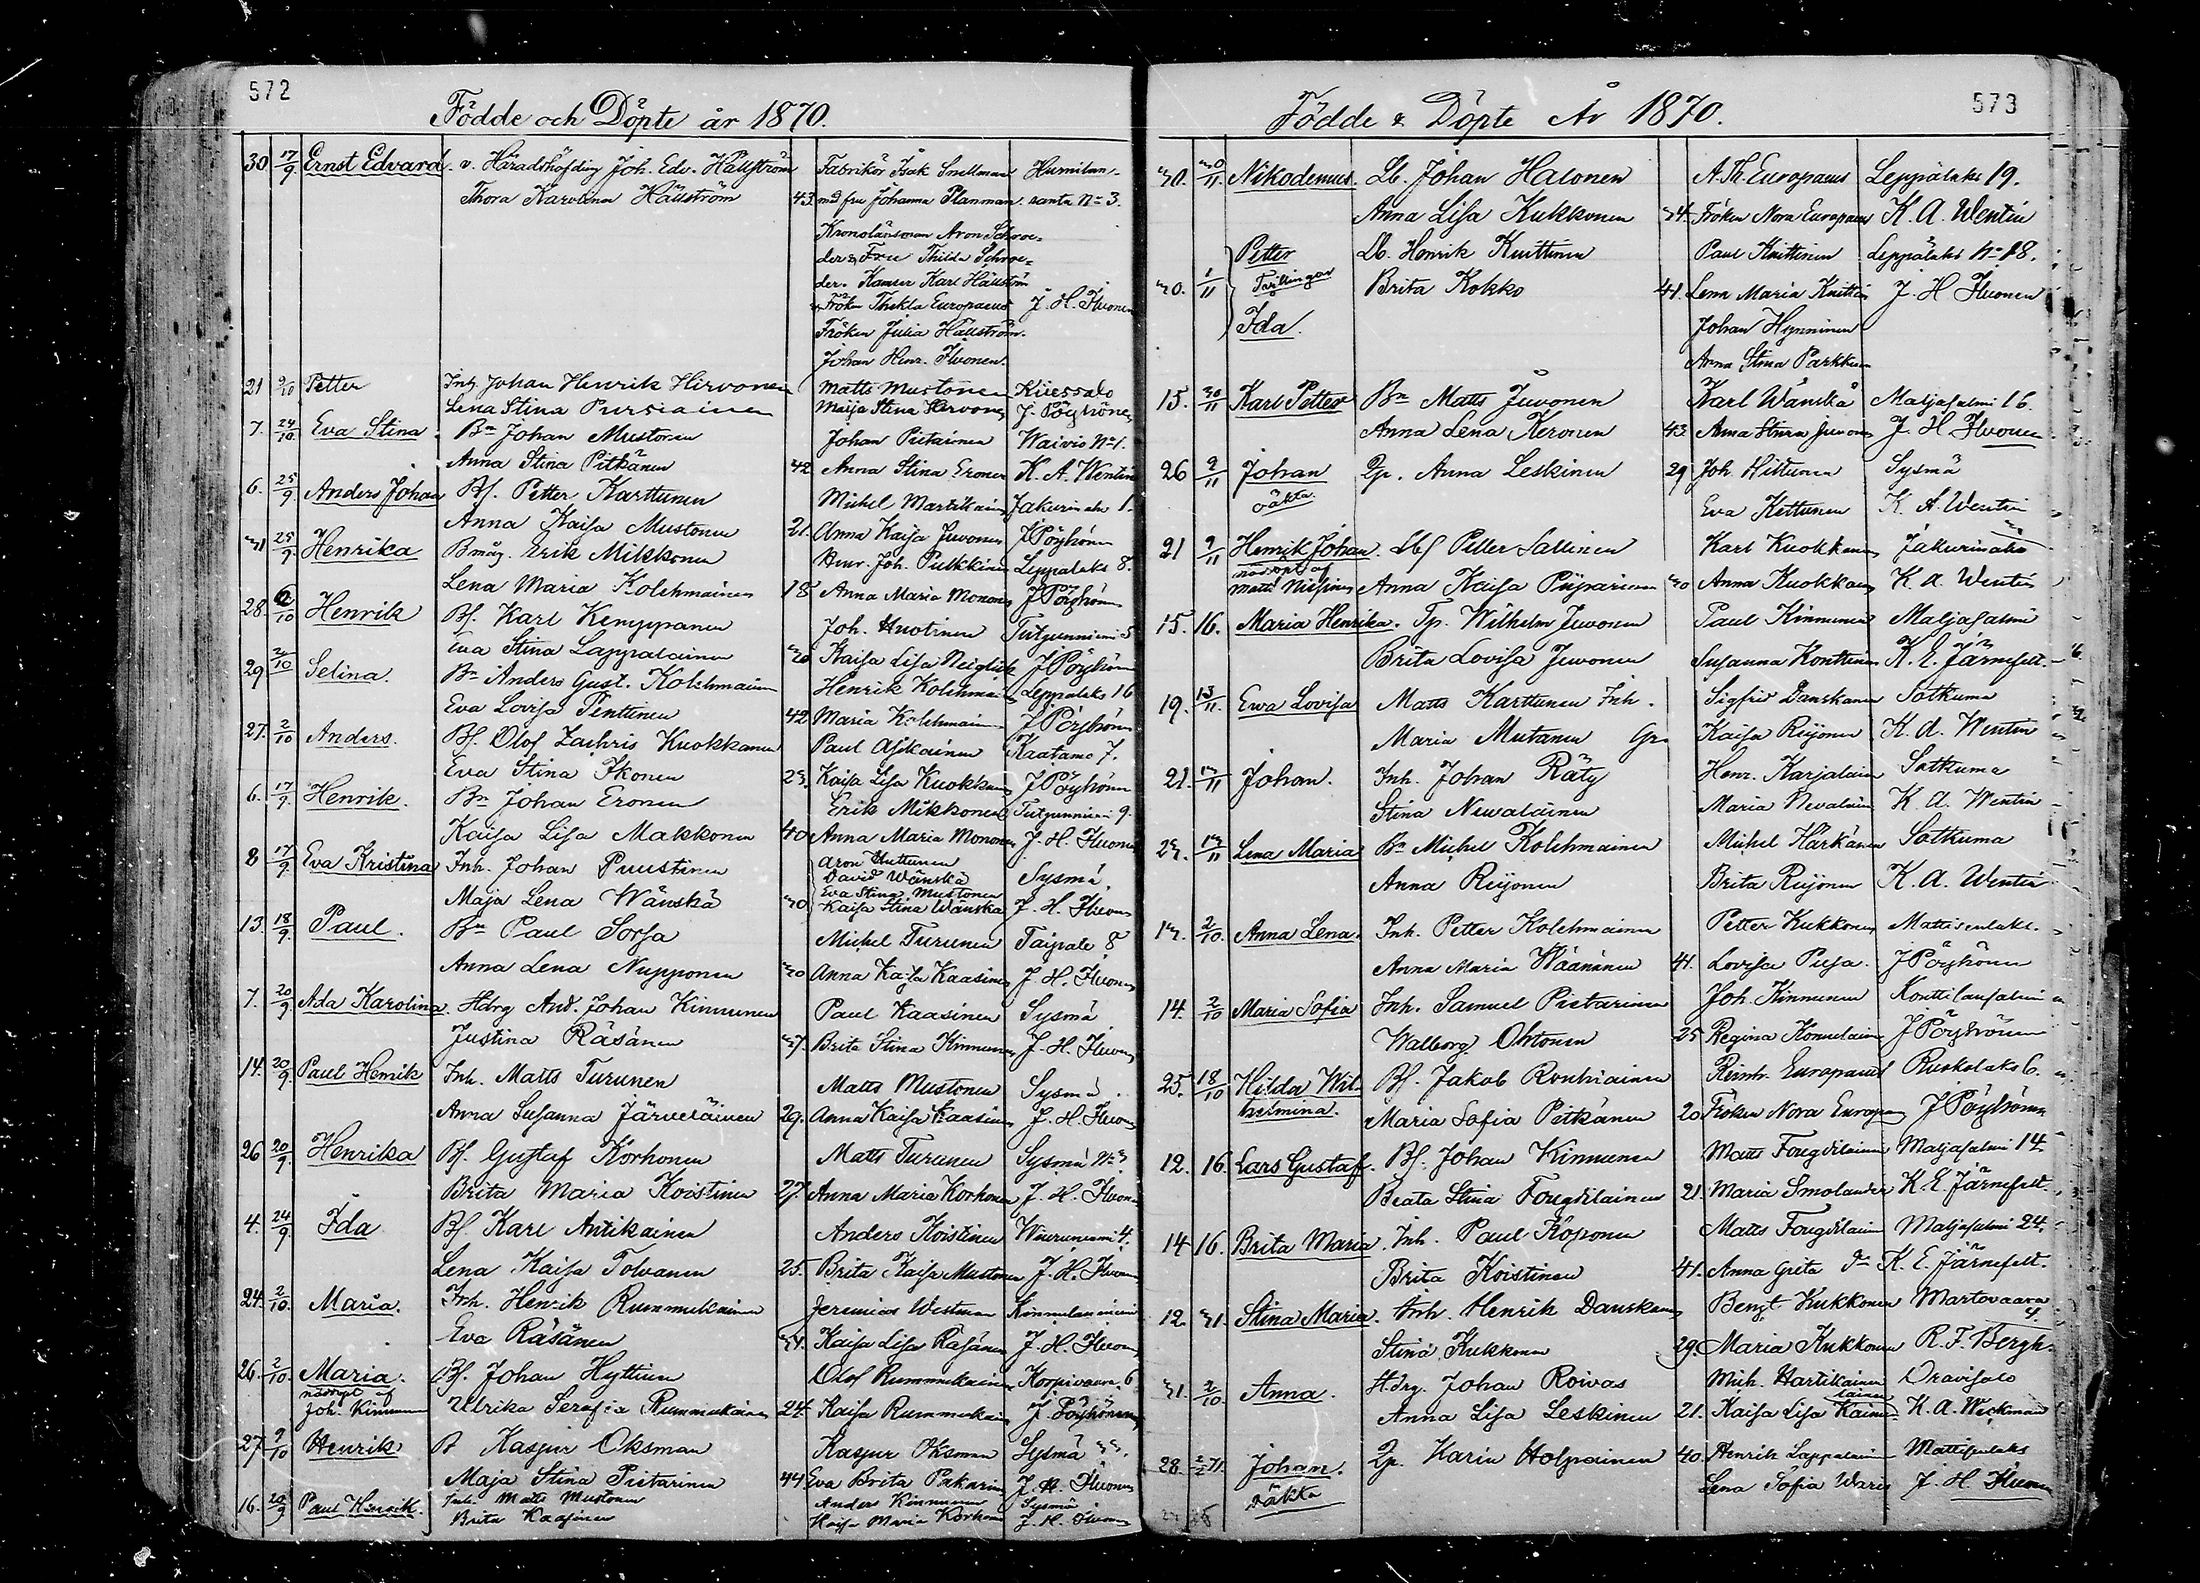 572
Födde och Döpte år 1870.
30 17/9 Ernst Edvard. v. Häradshöfding Joh. Edv. Hällström Fabrikör Isak Snellman
Thora Karolina Hällström 43. m. fru Johanna Planman. santa No 3.
Kronolänsman Aron Schroe-
der & Fru Thilda Schroe-
der. Karl Hällström
Fröken Thekla Europaeus J. H. Ihvonen
Fröken Julia Hällström.
Johan Henr. Ihvonen.
21 9/10 Petter Inh. Johan Henrik Hirvonen Matts Mustonen Kuessalo
Lena Stina Pursiainen Maija Stina Hirvonen J Pöyhönen
7. 24/10 Eva Stina Bn Johan Mustonen Johan Pietarinen Waivio No 1.
Anna Stina Pitkänen 42 Anna Stina Eronen K. A. Wentin
6. 25/9 Anders Johan Bf. Petter Karttunen Michel Martikainen Jakunvaara 1.
Anna Kaisa Mustonen 21. Anna Kaisa Juvonen J Pöyhönen
31 25/9 Henrika Bmåg. Erik Mikkonen Henr. Joh. Pulkkinen Leppälaks 8.
Lena Maria Kolehmainen 18 Anna Maria Mononen J Pöyhönen
28. 2/10 Henrik Bf. Karl Kemppanen Joh. Huotinen Tutjunniemi 5
Eva Stina Lappalainen 20 Kaisa Lisa Neiglick J Pöyhönen
29 2/10 Selina. Bn Anders Gust. Kolehmainen Henrik Kolehmainen Leppälaks 16
Eva Lovisa Penttinen 42 Maria Kolehmainen J Pöyhönen
27. 2/10 Anders. Bf. Olof Zachris Kuokkanen Paul Asikainen Kaatamo 7.
Eva Stina Ikonen 23. Kaisa Lisa Kuokkanen J Pöyhönen
6. 17/9 Henrik. Bn Johan Eronen Erik Mikkonen Tutjunniemi 9.
Kaisa Lisa Makkonen 40 Anna Maria Mononen J. H. Ihvonen
8 17/9 Eva Kristina Inh. Johan Puustinen Aron Huttunen
David Wänskä Sysmä.
Eva Stina Mustonen
Maja Lena Wänskä 30 Kaisa Stina Wänskä J. H. Ihvonen
13. 18/9 Paul. Bn Paul Sorsa Michel Turunen Taipale 8
Anna Lena Nupponen 30 Anna Kaisa Kaasinen J. H. Ihvonen
7. 20/9 Ada Karolina. Hdrg And. Johan Kinnunen Paul Kaasinen Sysmä
Justina Räsänen 37. Brita Stina Kinnunen J. H. Ihvonen
14. 20/9 Paul Henrik Inh. Matts Turunen Matts Mustonen Sysmä
Anna Susanna Järveläinen 29. Anna Kaisa Kaasinen J. H. Ihvonen
26 20/9 Henrika Bf. Gustaf Korhonen Matts Turunen Sysmä No 3
Brita Maria Koistinen 27. Anna Maria Korhonen J. H. Ihvonen
4. 24/9 Ida Bf. Karl Antikainen Anders Koistinen 4.
Lena Kaisa Tolvanen 25. Brita Kaisa Mustonen J. H. Ihvonen
24. 2/10 Maria. Inh. Henrik Rummukainen Jeremias Westman Kinnulanniemi
Eva Räsänen 34. Kaisa Lisa Räsänen J. H. Ihvonen
26. 2/10 Maria. Bf. Johan Hyttinen Olof Rummukainen Korpivaara 6
nöddopt af
Joh. Kinnunen Ulrika Serafia Rummukainen 24. Kaisa Rummukainen J Pöyhönen
27. 9/10 Henrik B Kaspur Oksman Kaspur Oksman Sysmä 33.
Maja Stina Pietarinen 44 Eva Brita Pakarinen J. H. Ihvonen
16. 20/9 Paul Henrik. Inh. Matts Mustonen Anders Kinnunen Sysmä
Brita Kaasinen Kaisa Maria Korhonen J. H. Ihvonen
573
Födde & Döpte År 1870.
30. 30/11. Nikodemus. Lb. Johan Halonen A. Th. Europaeus Leppälaks 19.
Anna Lisa Kukkonen 34. Fröken Nora Europaeus K. A. Wentin
Petter Lb. Henrik Knuttinen Paul Knuttinen Leppälaks No 18.
30. 1/11 Tvillingar Brita Kokko 41. Lena Maria Knuttinen J. H Ihvonen
Ida. Johan Hynninen
Anna Stina Parkkinen
15. 30/11 Karl Petter Bn Matts Juvonen Karl Wänskä Maljasalmi 16.
Anna Lena Keronen 43 Anna Stina Juvonen J. H Ihvonen
26 9/11 Johan Qp. Anna Leskinen 29 Joh. Hiltunen Sysmä
oäkta. Eva Kettunen K. A. Wentin
21 9/11 Henrik Johan. Lbf Petter Sallinen Karl Kuokkanen Jakunvaara
nöddopt af
Matts Anna Kaisa Piiparinen 30 Anna Kuokkanen K. A. Wentin
15. 16. Maria Henrika. Tp. Wilhelm Juvonen Paul Kinnunen Maljasalmi
Brita Lovisa Juvonen Susanna Konttinen K. E. Järnefelt.
19. 13/11. Ewa Lovisa Matts Karttunen Inh. Sigfrid Danskanen Sotkuma
Maria Mutanen Kaisa Reijonen K. A. Wentin
21. 13/11 Johan. Inh. Johan Räty Henr. Karjalainen Sotkuma
Stina Newalainen Maria Nevalainen K. A. Wentin
23. 13/11 Lena Maria Bn Michel Kolehmainen Michel Härkänen Sotkuma
Anna Reijonen Brita Reijonen K. A. Wentin
13. 2/10. Anna Lena. Inh. Petter Kolehmainen Petter Kukkonen Mattisenlaks.
Anna Maria Wäänänen 41. Lovisa Pusa. J Pöyhönen
14. 2/10 Maria Sofia Inh. Samuel Pietarinen Joh. Kinnunen Kontilansalmi
Walborg Ohtonen 25 Regina Konnulainen J Pöyhönen
25. 18/10 Hilda Wil- Bf. Jakob Rouhiainen Reinh. Europaeus Ruskolaks 6.
helmina. Maria Sofia Pitkänen 20 Fröken Nora Europaeus J Pöyhönen
12. 16. Lars Gustaf. Bf. Johan Kinnunen Matts Fougdilainen Maljasalmi 14.
Beata Stina Fougdilainen 21. Maria Smolander K. E. Järnefelt.
14 16. Brita Maria. Inh. Paul Koponen Matts Fougdilainen Maljasalmi 24.
Brita Koistinen 41. Anna Greta do K. E. Järnefelt.
12. 31. Stina Maria. Inh. Henrik Danskanen Bengt Kukkonen Martovaara 4.
Stina Kukkonen 29. Maria Kukkonen R. F. Bergh.
31. 2/10. Anna. Hdrg. Johan Roivas Mich. Hartikainen Oravisalo
Anna Lisa Leskinen 21. Kaisa Lisa Kainulainen K. A. Wickman
28. 2/2 71. Johan. Qp. Karin Holpainen 40. Henrik Lappalainen Mattisenlaks
oäkta Lena Sofia Waris J. H. Ihvonen